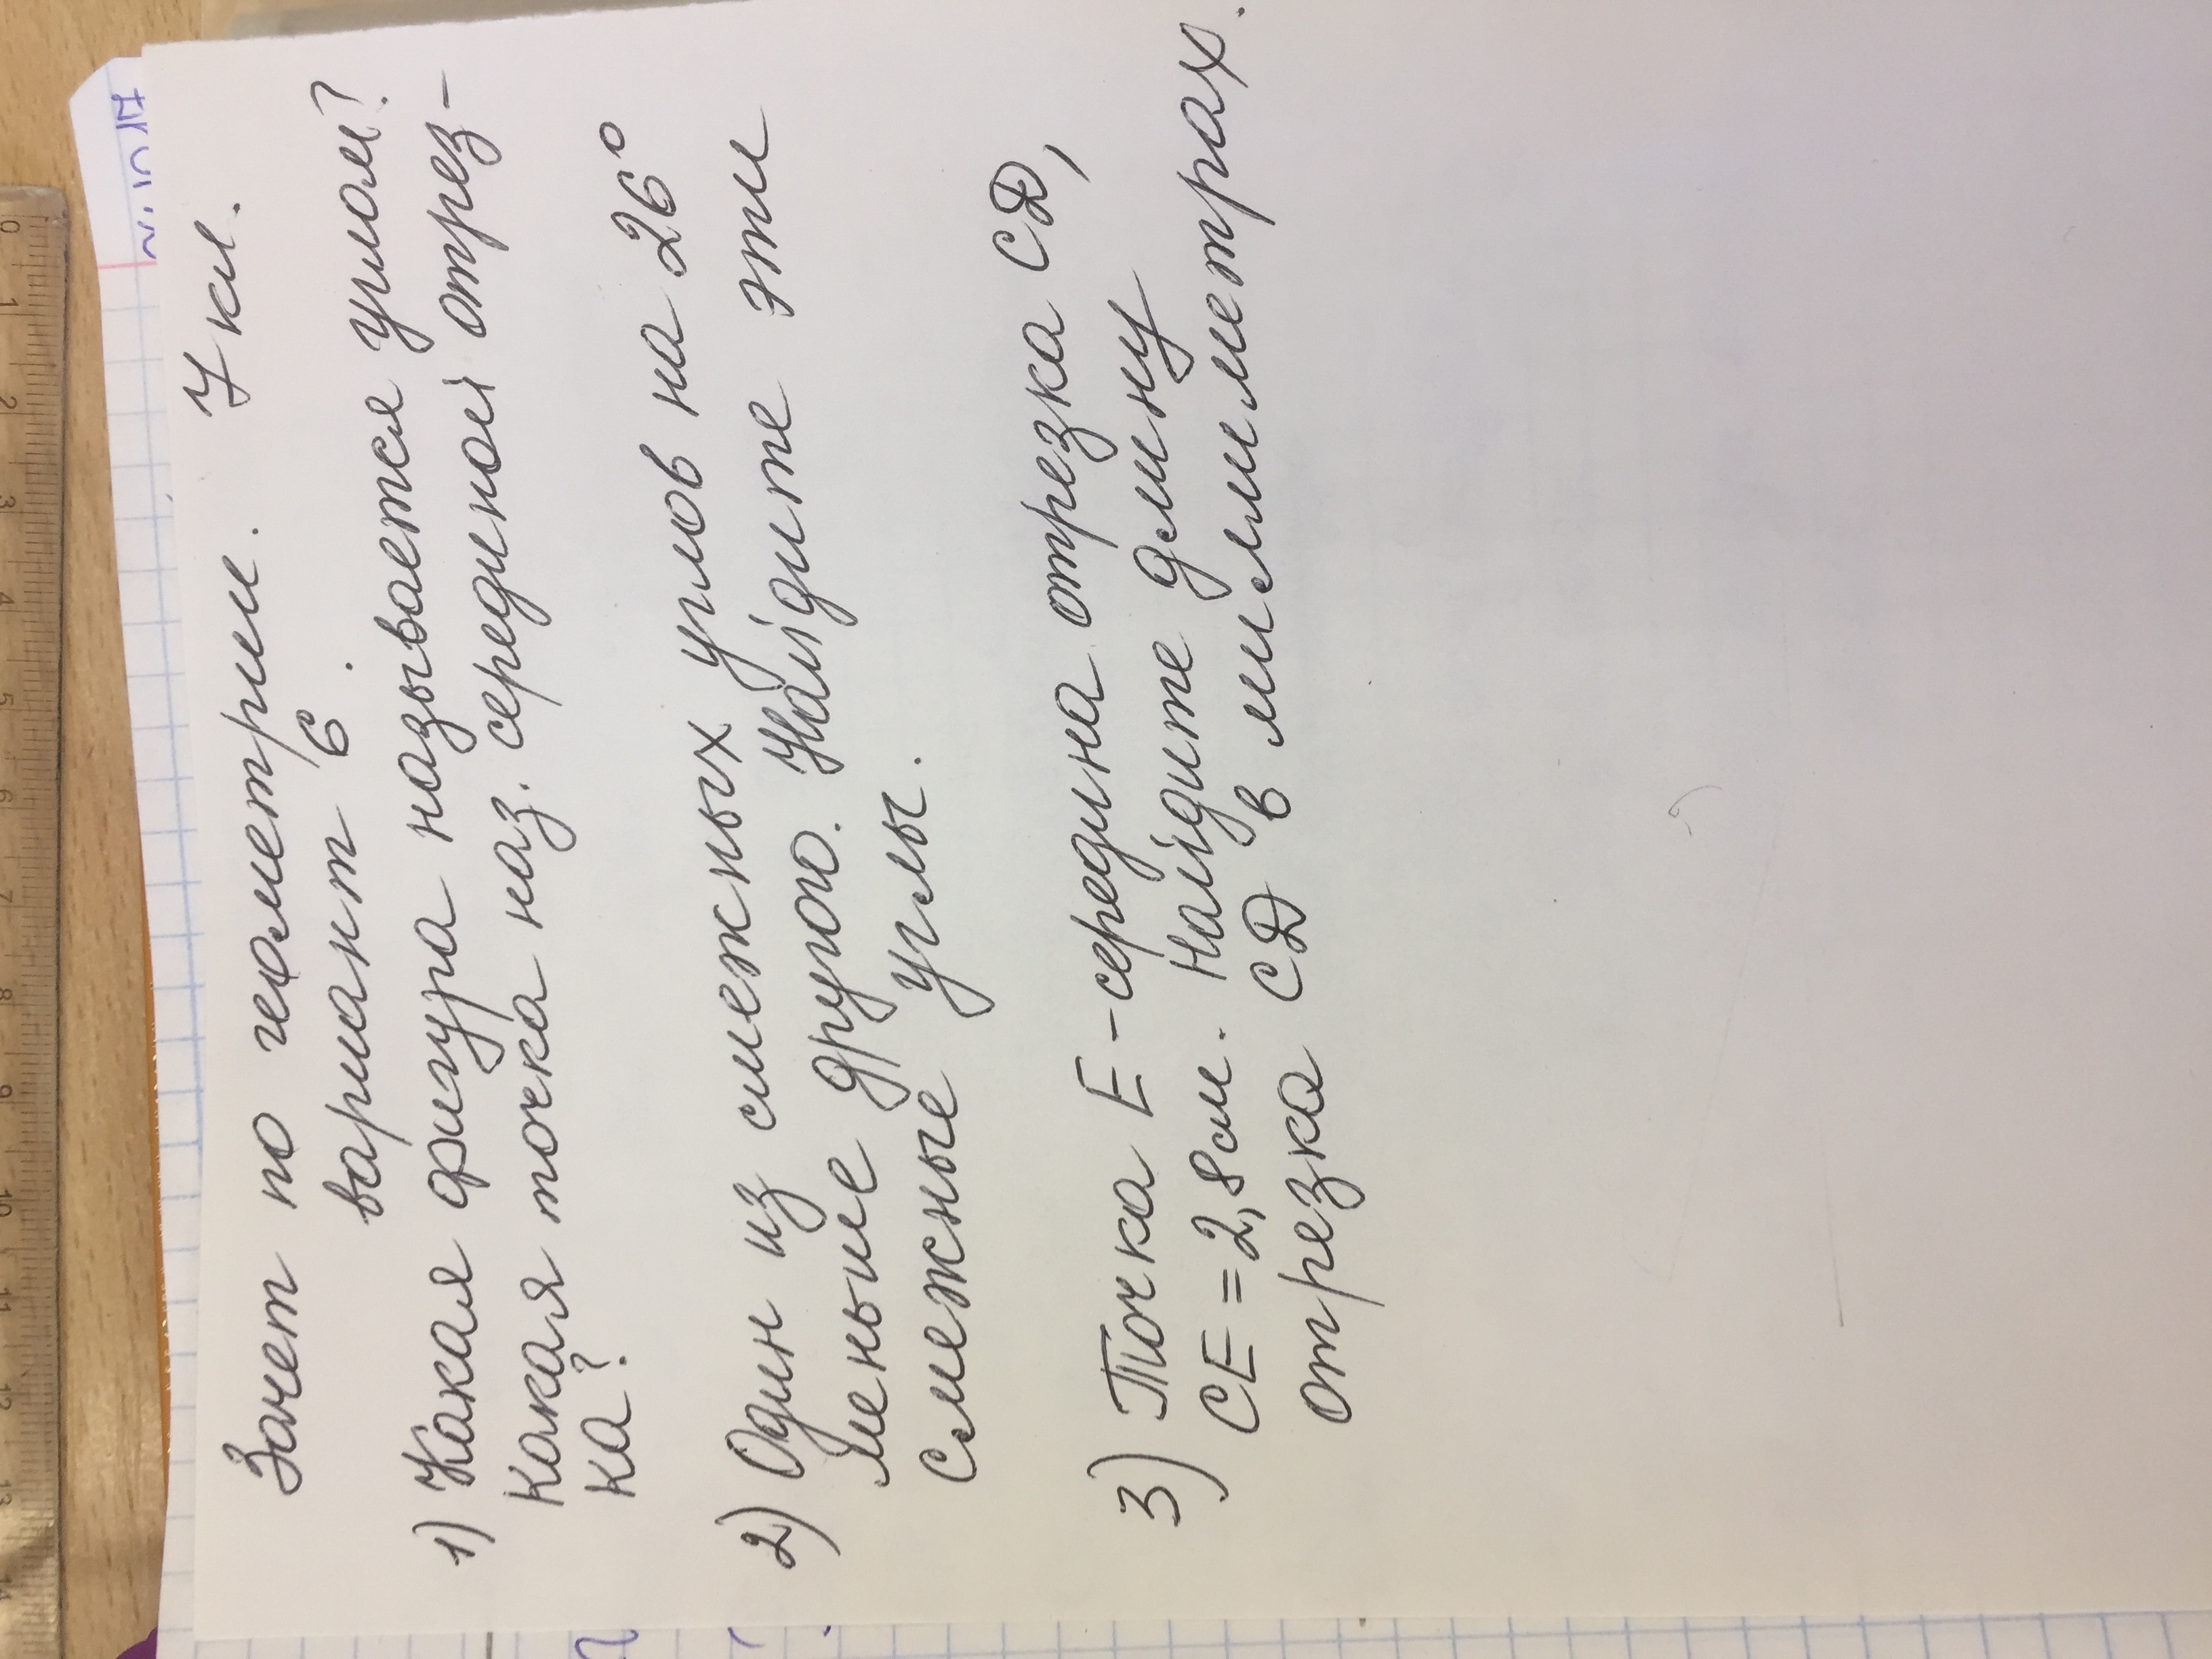 14 13 12 11 10 9 8 7 6 5 4 3 2 1 0
Зачет по геометрии. 7 кл.
вариант 6.
1) Какая фигура называется углом?
Какая точка наз. серединой отрез-
ка?
2) Один из смежных углов на 26°
меньше другого. Найдите эти
смежные углы.
3) Точка E - середина отрезка CD,
CE = 2,8 см. Найдите длину
отрезка CD в миллиметрах.